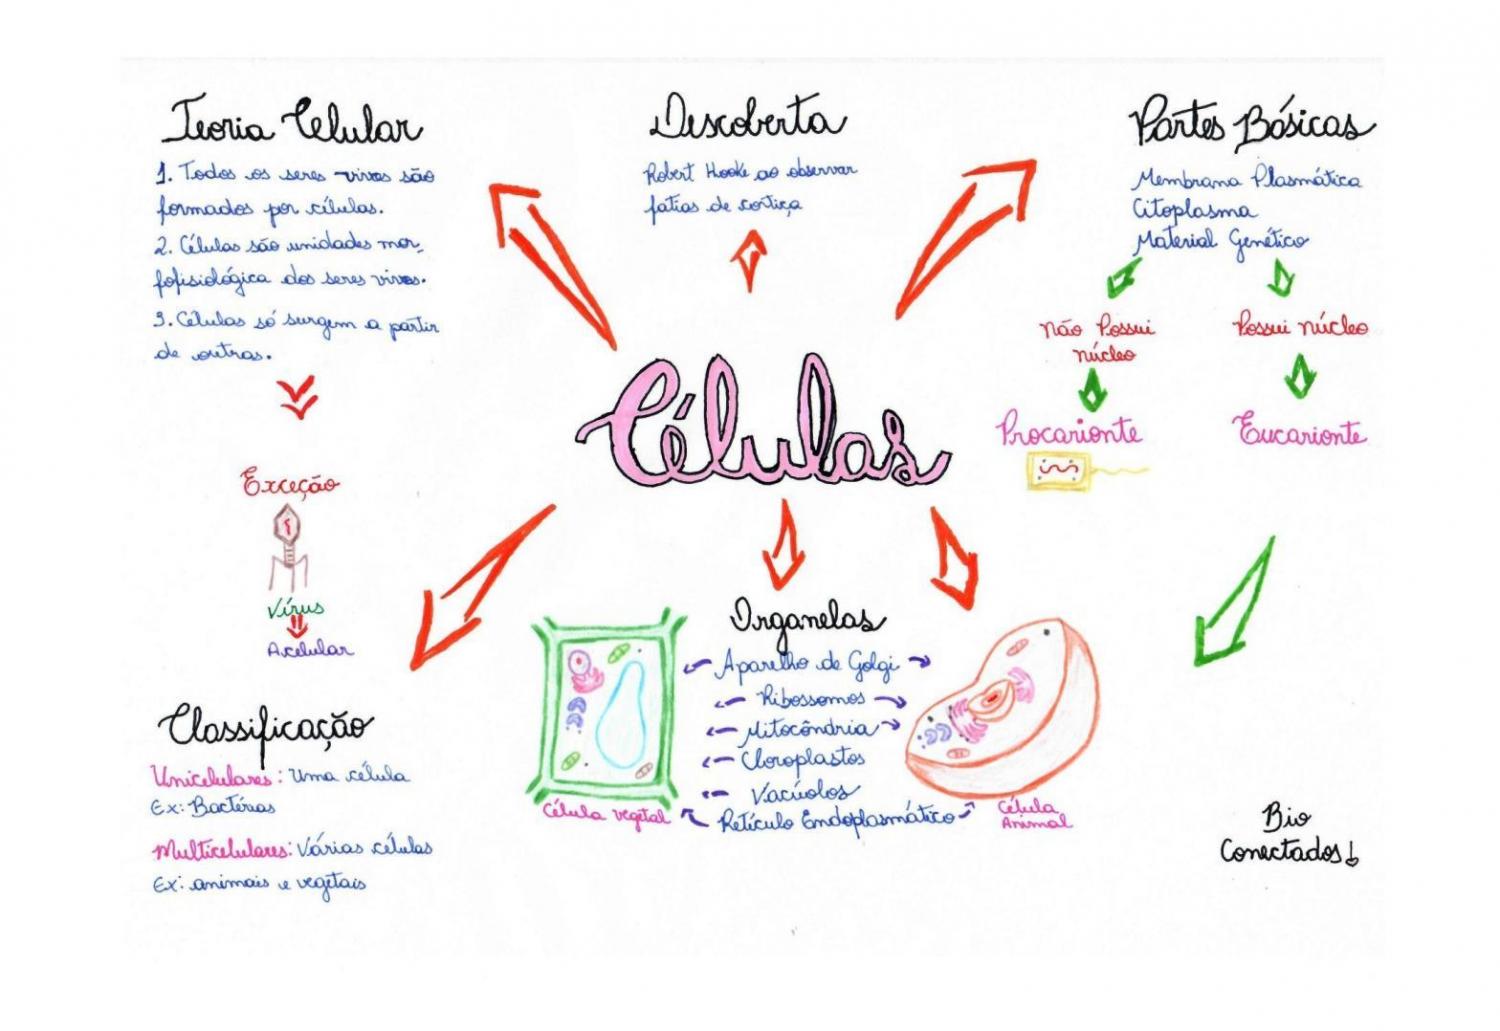 Teoria Celular
1. Todos os seres vivos são
formados por células.
2. Células são unidades mor-
fofisiológica dos seres vivos.
3. Células só surgem a partir
de outras.
Exceção
Vírus
Acelular
Descoberta
Robert Hooke ao observar
fatias de cortiça
Partes Básicas
Membrana Plasmática
Citoplasma
Material Genético
Não Possui
núcleo
Procarionte
Possui núcleo
Eucarionte
Células
Classificação
Unicelulares: Uma célula
Ex: Bactérias
Multicelulares: Várias células
Ex: animais e vegetais
Organelas
Aparelho de Golgi
Ribossomos
Mitocôndria
Cloroplastos
Vacúolos
Retículo Endoplasmático
Célula vegetal
Célula
Animal
Bio
Conectados!